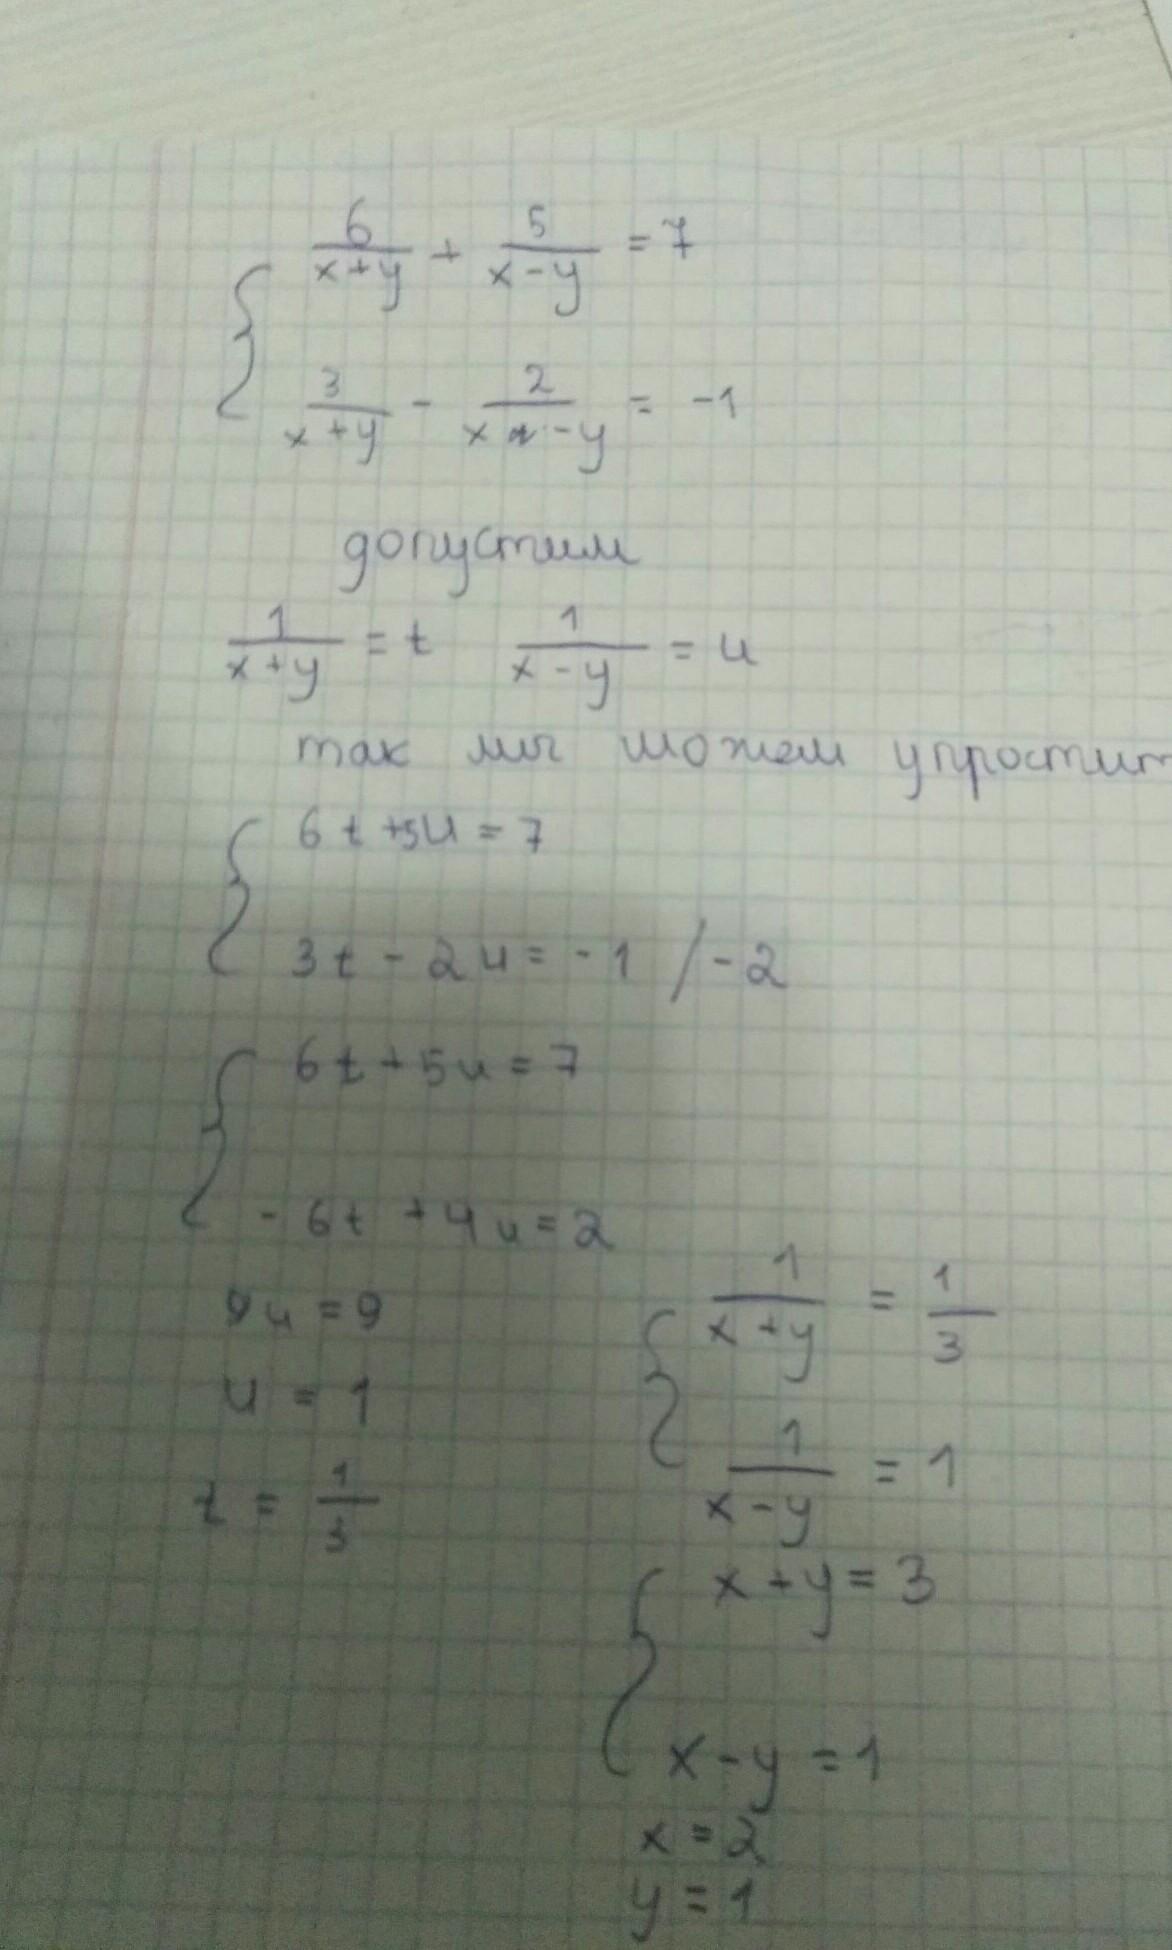 6/(x+y) + 5/(x-y) = 7
3/(x+y) - 2/(x-y) = -1
допустим
1/(x+y) = t    1/(x-y) = u
так мы можем упростит
6t+5u=7
3t-2u=-1 /-2
6t+5u=7
-6t+4u=2
9u=9
u=1
t=1/3
1/(x+y) = 1/3
1/(x-y) = 1
x+y=3
x-y=1
x=2
y=1